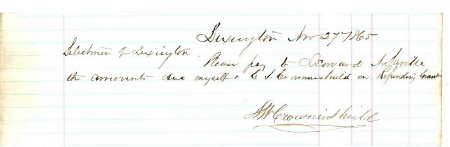 Lexington Nov 27 1865
Selectmen of Lexington Please pay to Leonard
the amounts due myself & E S Crowninshield on Refunding
A W Crowninshield